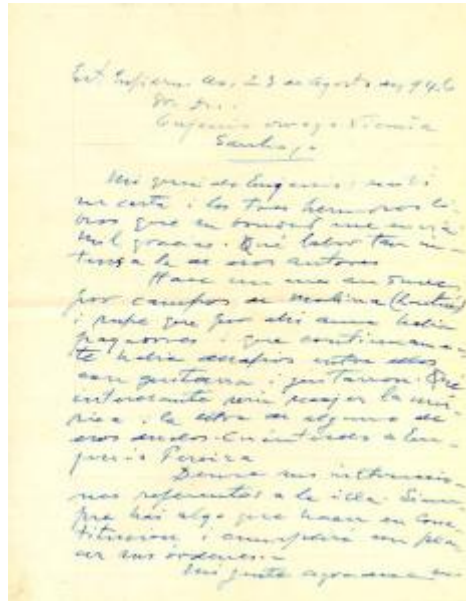 23 de Agosto de 1946
Sr. Dn.
Eugenio
Santiago
Mi querido Eugenio: recibí
su carta i los tres hermosos li-
bros que en me envía
Mil gracias. Qué labor tan in-
tensa la de esos autores
Hace un mes anduve
por campos de Molina (Lontué)
i supe que por ahí aún había
payadores i que continuamen-
te había desafíos entre ellos
con guitarra i guitarrón. Qué
interesante sería recojer la mú-
sica i la letra de alguno de
esos duelos. Cuénteselo a Eu-
genio Pereira
Deme sus instruccio-
nes referentes a la isla. Siem-
pre hai algo que hacer en Cons-
titución i cumpliré con pla-
cer sus órdenes.
Mi gente agradece